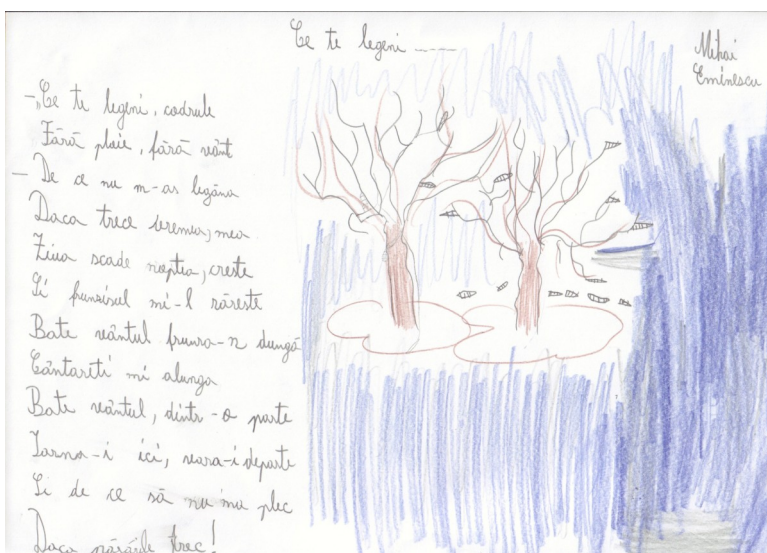 Ce te legeni ........
Mihai
Eminescu
– „Ce te legeni, codrule
Fără ploie, fără vânt
– De ce nu m-as legăna
Daca trece vremea, mea
Ziua scade noptea, creste
Si frunzisul mi-l răreste
Bate vântul frunza-n dungă
Cântareti mi alunga
Bate vântul, dintr-o parte
Iarna-i ici, vara-i departe
Si de ce să nu mu plec
Daca trec!